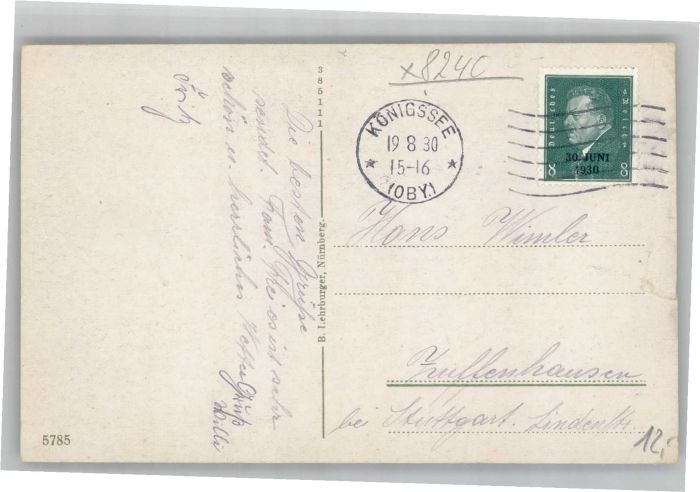 x8240
KÖNIGSSEE
19 8 30
15-16
(OBY.)
Deutsches Reich
30. JUNI
1930
8 8
Die besten Grüße
sendet Fam.
schön u. herrliches
Fritz
Gruß
Willi
385111
B. Lehrburger, Nürnberg.
Hans Wimler
Zuffenhausen
bei Stuttgart. Lindenstr.
12,-
5785